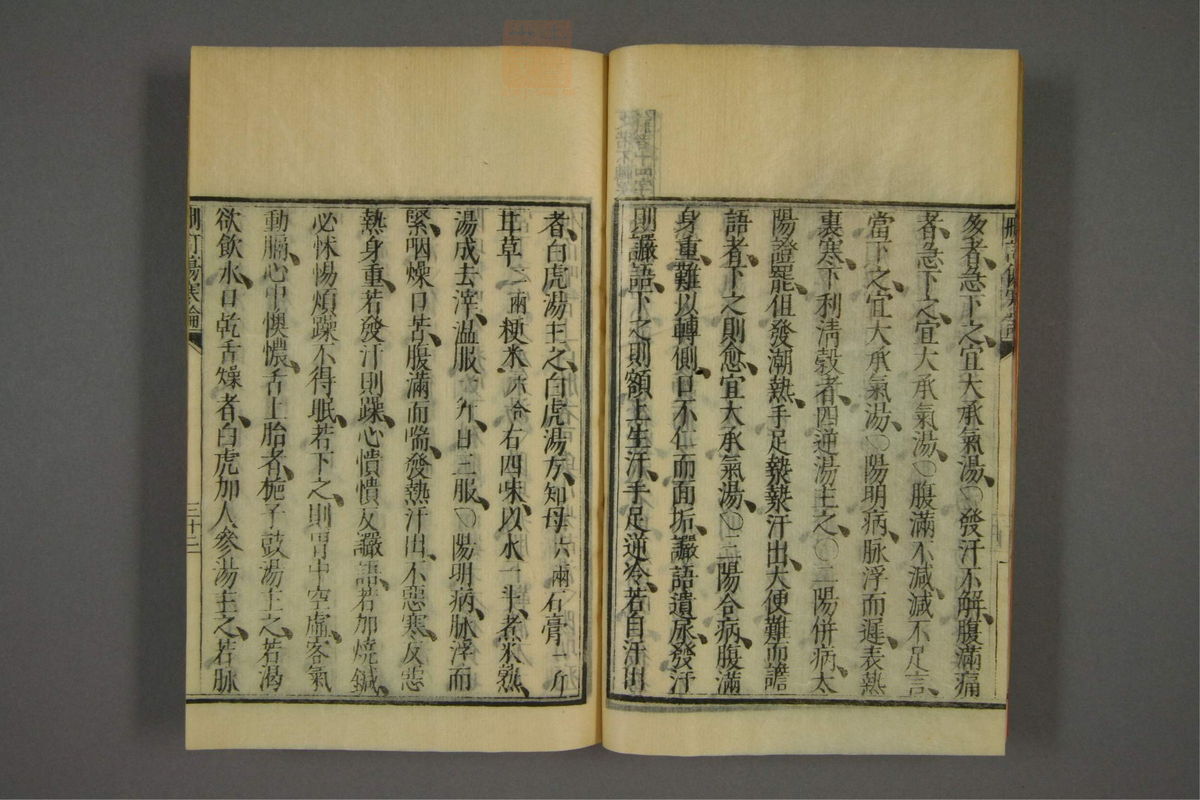 多者急下之宜大承氣湯○發汗不解腹滿痛
者急下之宜大承氣湯○腹滿不減減不足言
當下之宜大承氣湯○陽明病脉浮而遲表熱
裏寒下利清穀者四逆湯主之○二陽併病太
陽證罷但發潮熱手足漐漐汗出大便難而譫
語者下之則愈宜大承氣湯○三陽合病腹滿
身重難以轉側口不仁而面垢讝語遺尿發汗
則讝語下之則額上生汗手足逆冷若自汗出
者白虎湯主之白虎湯方知母六兩石膏一斤
甘草二兩粳米六合右四味以水一斗煮米熟
湯成去滓温服一升日三服○陽明病脉浮而
緊咽燥口苦腹滿而喘發熱汗出不惡寒反惡
熱身重若發汗則躁心憒憒反讝語若加燒鍼
必怵惕煩躁不得眠若下之則胃中空虛客氣
動膈心中懊憹舌上胎者梔子鼓湯主之若渴
欲飲水口乾舌燥者白虎加人參湯主之若脉
刪訂傷寒論
三十二